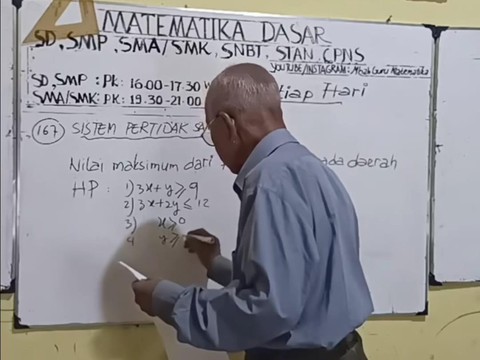 MATEMATIKA DASAR
SD, SMP, SMA/SMK, SNBT, STAN, CPNS
YOUTUBE/INSTAGRAM: Mbah Guru Matematika
SD, SMP : Pk: 16.00-17.30 W
SMA/SMK: PK: 19.30-21.00 tiap Hari
167 SISTEM PERTIDAK
Nilai maksimum dari daerah
HP : 1) 3x + y ≥ 9
2) 3x + 2y ≤ 12
3) x ≥ 0
4 y ≥